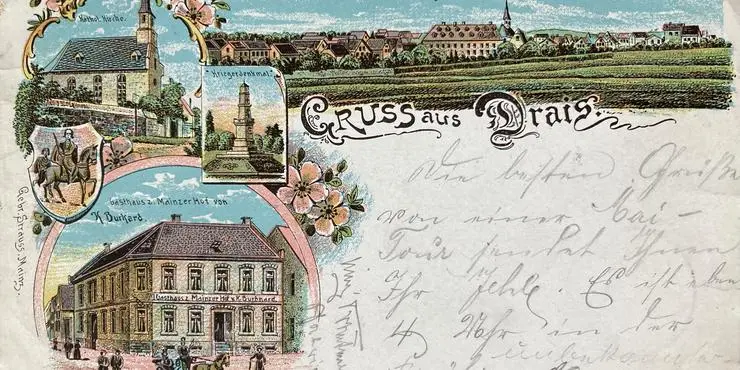 Kathol. Kirche.
"Kriegerdenkmal."
GRUSS aus Drais.
Gasthaus z. Mainzer Hof von
K. Burkard.
Gasthaus z. Mainzer Hof v. K. Burkhard
Gebr. Strauss, Mainz.
Die besten Grüße
von einer Mai-
Tour sendet Ihnen
Ihr Es ist eben
4 Uhr in der